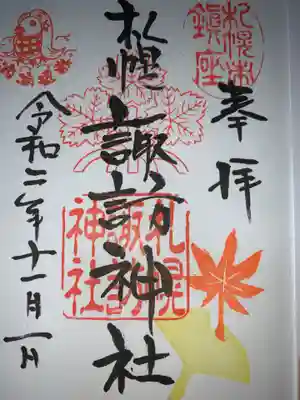 奉拝
札幌諏訪神社
令和二年十一月一日
札幌東鎮座
札幌諏訪神社